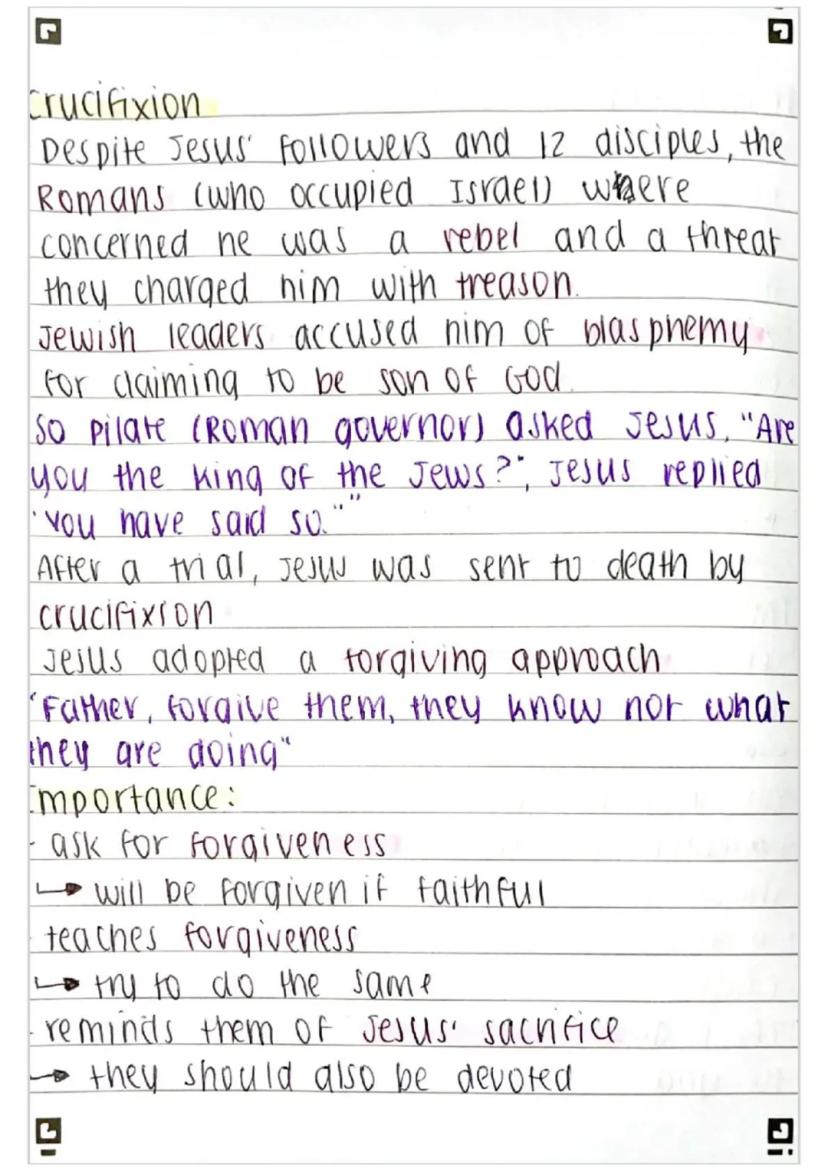 Crucifixion
Despite Jesus' followers and 12 disciples, the
Romans (who occupied Israel) where
concerned he was a rebel and a threat
they charged him with treason.
Jewish leaders accused him of blasphemy
for claiming to be son of God.
So Pilate (Roman governor) asked Jesus, "Are
you the King of the Jews?", Jesus replied
"You have said so.""
After a trial, Jesus was sent to death by
crucifixion
Jesus adopted a forgiving approach
"Father, forgive them, they know not what
they are doing"
Importance:
- ask for forgiveness
↳ will be forgiven if faithful
- teaches forgiveness
↳ try to do the same
- reminds them of Jesus' sacrifice
→ they should also be devoted